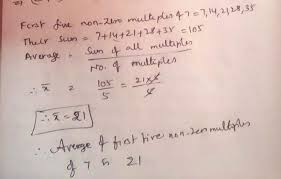 First five non-zero multiples of 7 = 7, 14, 21, 28, 35
Their sum = 7+14+21+28+35 = 105
Average = Sum of all multiples / No. of multiples
∴ x̄ = 105/5 =
∴ x̄ = 21
∴ Average of first five non-zero multiples
of 7 is 21